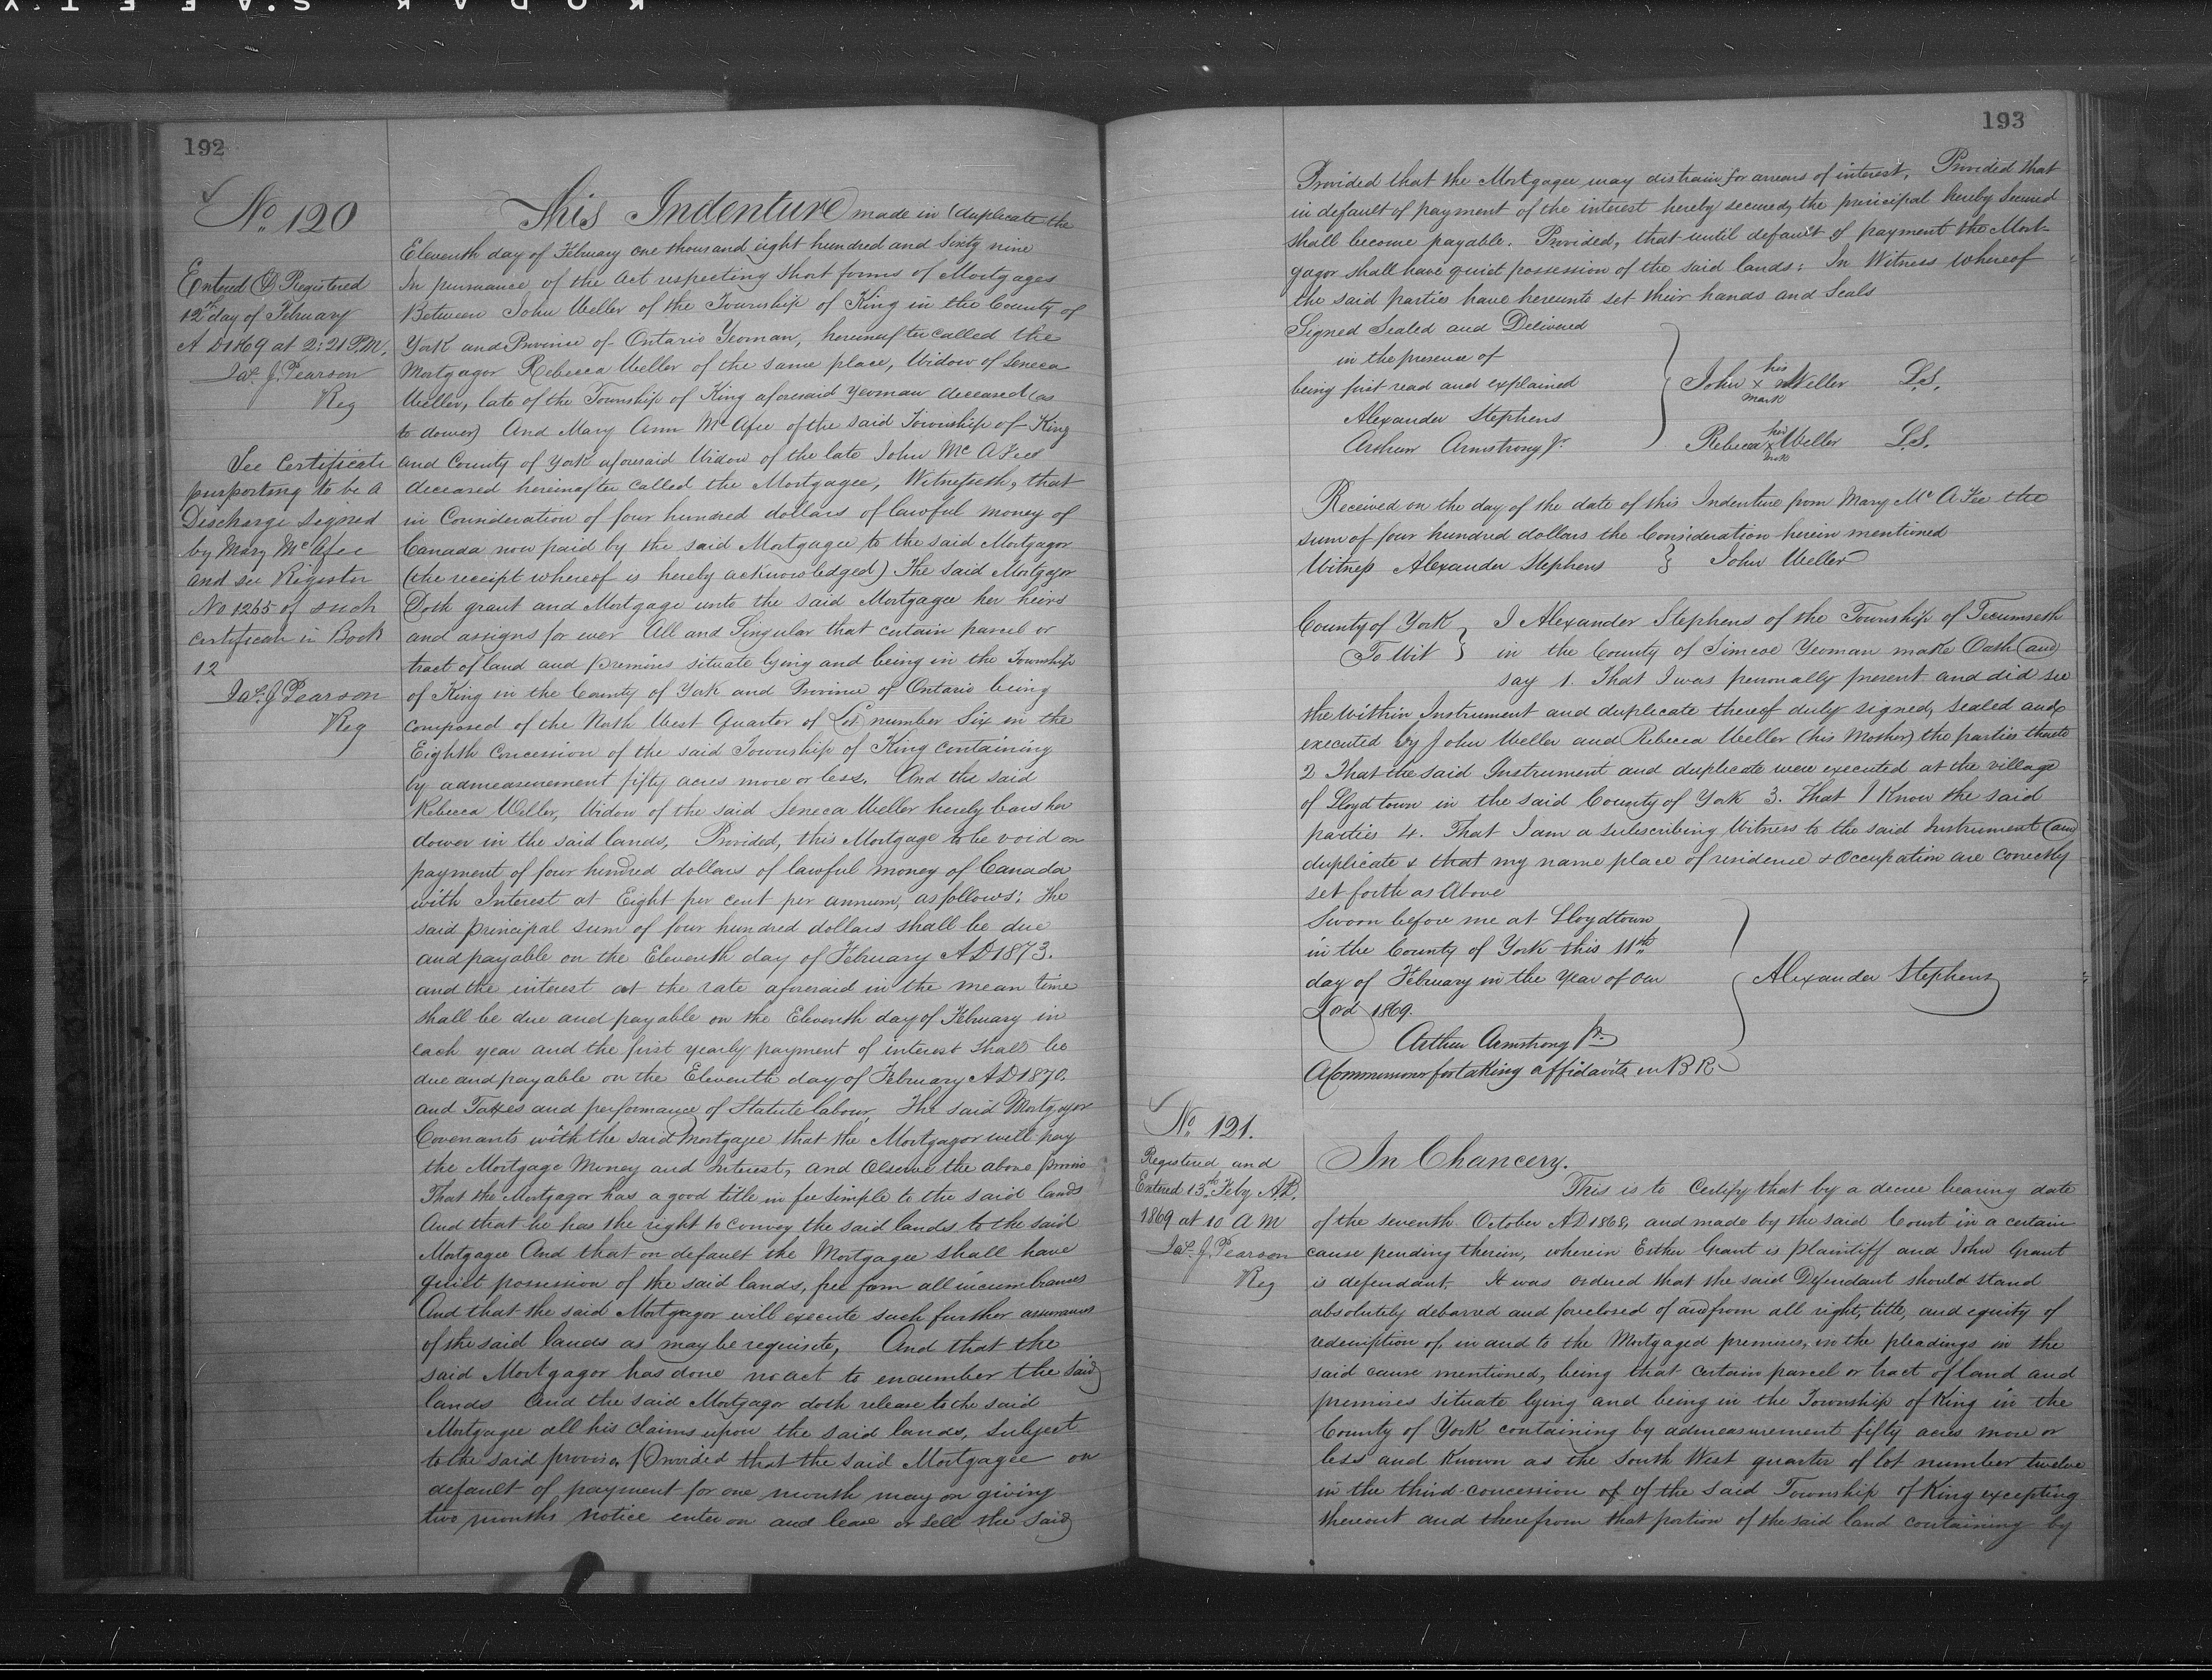 KODAK SAFETY
192
No. 120
Entered & Registered
12th day of February
A D 1869 at 2:21 P.M.
Jas. J. Pearson
Reg
See Certificate
purporting to be a
Discharge signed
by Mary McAfee
and see Register
No 1265 of such
certificate in Book
12
Jas. J. Pearson
Reg
This Indenture made in duplicate the
Eleventh day of February one thousand eight hundred and Sixty nine
In pursuance of the Act respecting Short forms of Mortgages
Between John Weller of the Township of King in the County of
York and Province of Ontario Yeoman, hereinafter called the
Mortgagor Rebecca Weller of the same place, Widow of Seneca
Weller, late of the Township of King aforesaid Yeoman deceased (as
to dower) And Mary Ann McAfee of the said Township of King
and County of York aforesaid Widow of the late John McAFee
deceased hereinafter called the Mortgagee, Witnesseth, that
in Consideration of four hundred dollars of lawful money of
Canada now paid by the said Mortgagee to the said Mortgagor
(the receipt whereof is hereby acknowledged) The said Mortgagor
Doth grant and Mortgage unto the said Mortgagee her heirs
and assigns for ever All and Singular that certain parcel or
tract of land and premises situate lying and being in the Township
of King in the County of York and Province of Ontario being
composed of the North West Quarter of Lot number Six in the
Eighth Concession of the said Township of King containing
by admeasurement fifty acres more or less. And the said
Rebecca Weller, Widow of the said Seneca Weller hereby bars her
dower in the said lands, Provided, this Mortgage to be void on
payment of four hundred dollars of lawful money of Canada
with Interest at Eight per cent per annum, as follows: The
said principal sum of four hundred dollars shall be due
and payable on the Eleventh day of February A D 1873.
and the interest at the rate aforesaid in the mean time
shall be due and payable on the Eleventh day of February in
each year and the first yearly payment of interest shall be
due and payable on the Eleventh day of February A D 1870.
and Taxes and performance of Statute labour, The said Mortgagor
Covenants with the said Mortgagee that the Mortgagor will pay
the Mortgage Money and Interest, and observe the above proviso
That the Mortgagor has a good title in fee simple to the said lands
And that he has the right to convey the said lands to the said
Mortgagee And that on default the Mortgagee shall have
quiet possession of the said lands, free from all incumbrances
And that the said Mortgagor will execute such further assurances
of the said lands as may be requisite, And that the
said Mortgagor has done no act to encumber the said
lands And the said Mortgagor doth release to the said
Mortgagee all his claims upon the said lands, subject
to the said proviso, Provided that the said Mortgagee on
default of payment for one month may on giving
two months notice enter on and lease or sell the said
193
Provided that the Mortgagee may distrain for arrears of interest, Provided that
in default of payment of the interest hereby secured, the principal hereby secured
shall become payable. Provided, that until default of payment the Mort-
gagor shall have quiet possession of the said lands: In Witness whereof
the said parties have hereunto set their hands and Seals
Signed Sealed and Delivered
in the presence of
being first read and explained
Alexander Stephens
Arthur Armstrong Jr
John his x mark Weller L.S.
Rebecca her x mark Weller L.S.
Received on the day of the date of this Indenture from Mary McAFee the
sum of four hundred dollars the Consideration herein mentioned
Witness Alexander Stephens } John Weller
County of York } I Alexander Stephens of the Township of Tecumseth
To Wit } in the County of Simcoe Yeoman make Oath and
say 1. That I was personally present and did see
the within Instrument and duplicate thereof duly signed, sealed and
executed by John Weller and Rebecca Weller (his Mother) the parties thereto
2 That the said Instrument and duplicate were executed at the village
of Lloydtown in the said County of York 3. That I Know the said
parties 4. That I am a subscribing Witness to the said Instrument and
duplicate & that my name place of residence & Occupation are correctly
set forth as Above
Sworn before me at Lloydtown
in the County of York this 11th
day of February in the Year of Our
Lord 1869.
Alexander Stephens
Arthur Armstrong Jr.
A Commissioner for taking affidavits in B R
No. 121.
Registered and
Entered 13th Feby A.D.
1869 at 10 A M
Jas. J. Pearson
Reg
In Chancery.
This is to Certify that by a decree bearing date
of the seventh October A D 1868, and made by the said Court in a certain
cause pending therein, wherein Esther Grant is plaintiff and John Grant
is defendant. It was ordered that the said Defendant should stand
absolutely debarred and foreclosed of and from all right, title, and equity of
redemption of, in and to the Mortgaged premises, in the pleadings in the
said cause mentioned, being that certain parcel or tract of land and
premises situate lying and being in the Township of King in the
County of York containing by admeasurement fifty acres more or
less and Known as the South West quarter of lot number twelve
in the third concession of of the said Township of King excepting
thereout and therefrom that portion of the said land containing by